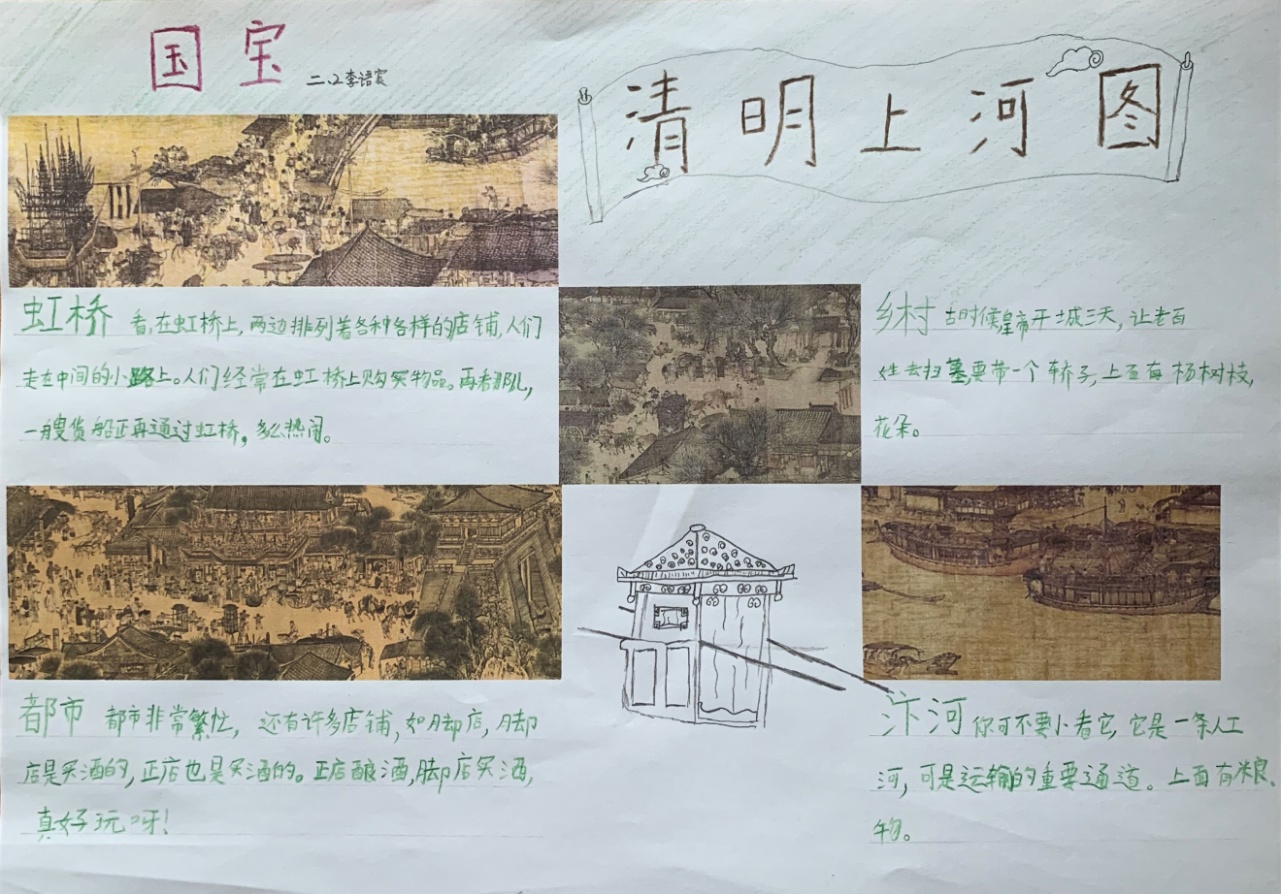 国宝
二、2李语宸
清明上河图
虹桥 看,在虹桥上,两边排列着各种各样的店铺,人们
走在中间的小路上。人们经常在虹桥上购买物品。再看那儿,
一艘货船正再通过虹桥,多么热闹。
乡村 古时候皇帝开城三天,让老百
姓去扫墓要带一个轿子,上面有杨树枝,
花朵。
都市 都市非常繁忙,还有许多店铺,如脚店,脚
店是买酒的,正店也是买酒的。正店酿酒,脚店买酒,
真好玩呀!
汴河 你可不要小看它,它是一条人工
河,可是运输的重要通道。上面有粮
物。